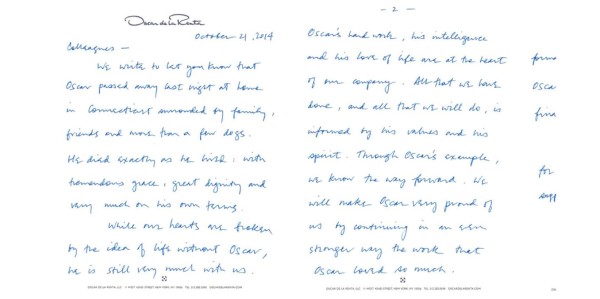 Oscar de la Renta
October 21, 2014
Colleagues —
We write to let you know that
Oscar passed away last night at home
in Connecticut surrounded by family,
friends and more than a few dogs.
He died exactly as he lived: with
tremendous grace, great dignity and
very much on his own terms.
While our hearts are broken
by the idea of life without Oscar,
he is still very much with us.
OSCAR DE LA RENTA, LLC 11 WEST 42ND STREET NEW YORK, NY 10036
- 2 -
Oscar's hard work, his intelligence
and his love of life are at the heart
of our company. All that we have
done, and all that we will do, is
informed by his values and his
spirit. Through Oscar's example,
we know the way forward. We
will make Oscar very proud of
us by continuing in an even
stronger way the work that
Oscar loved so much.
OSCAR DE LA RENTA, LLC 11 WEST 42ND STREET NEW YORK, NY 10036
Osca
fina
for
supp